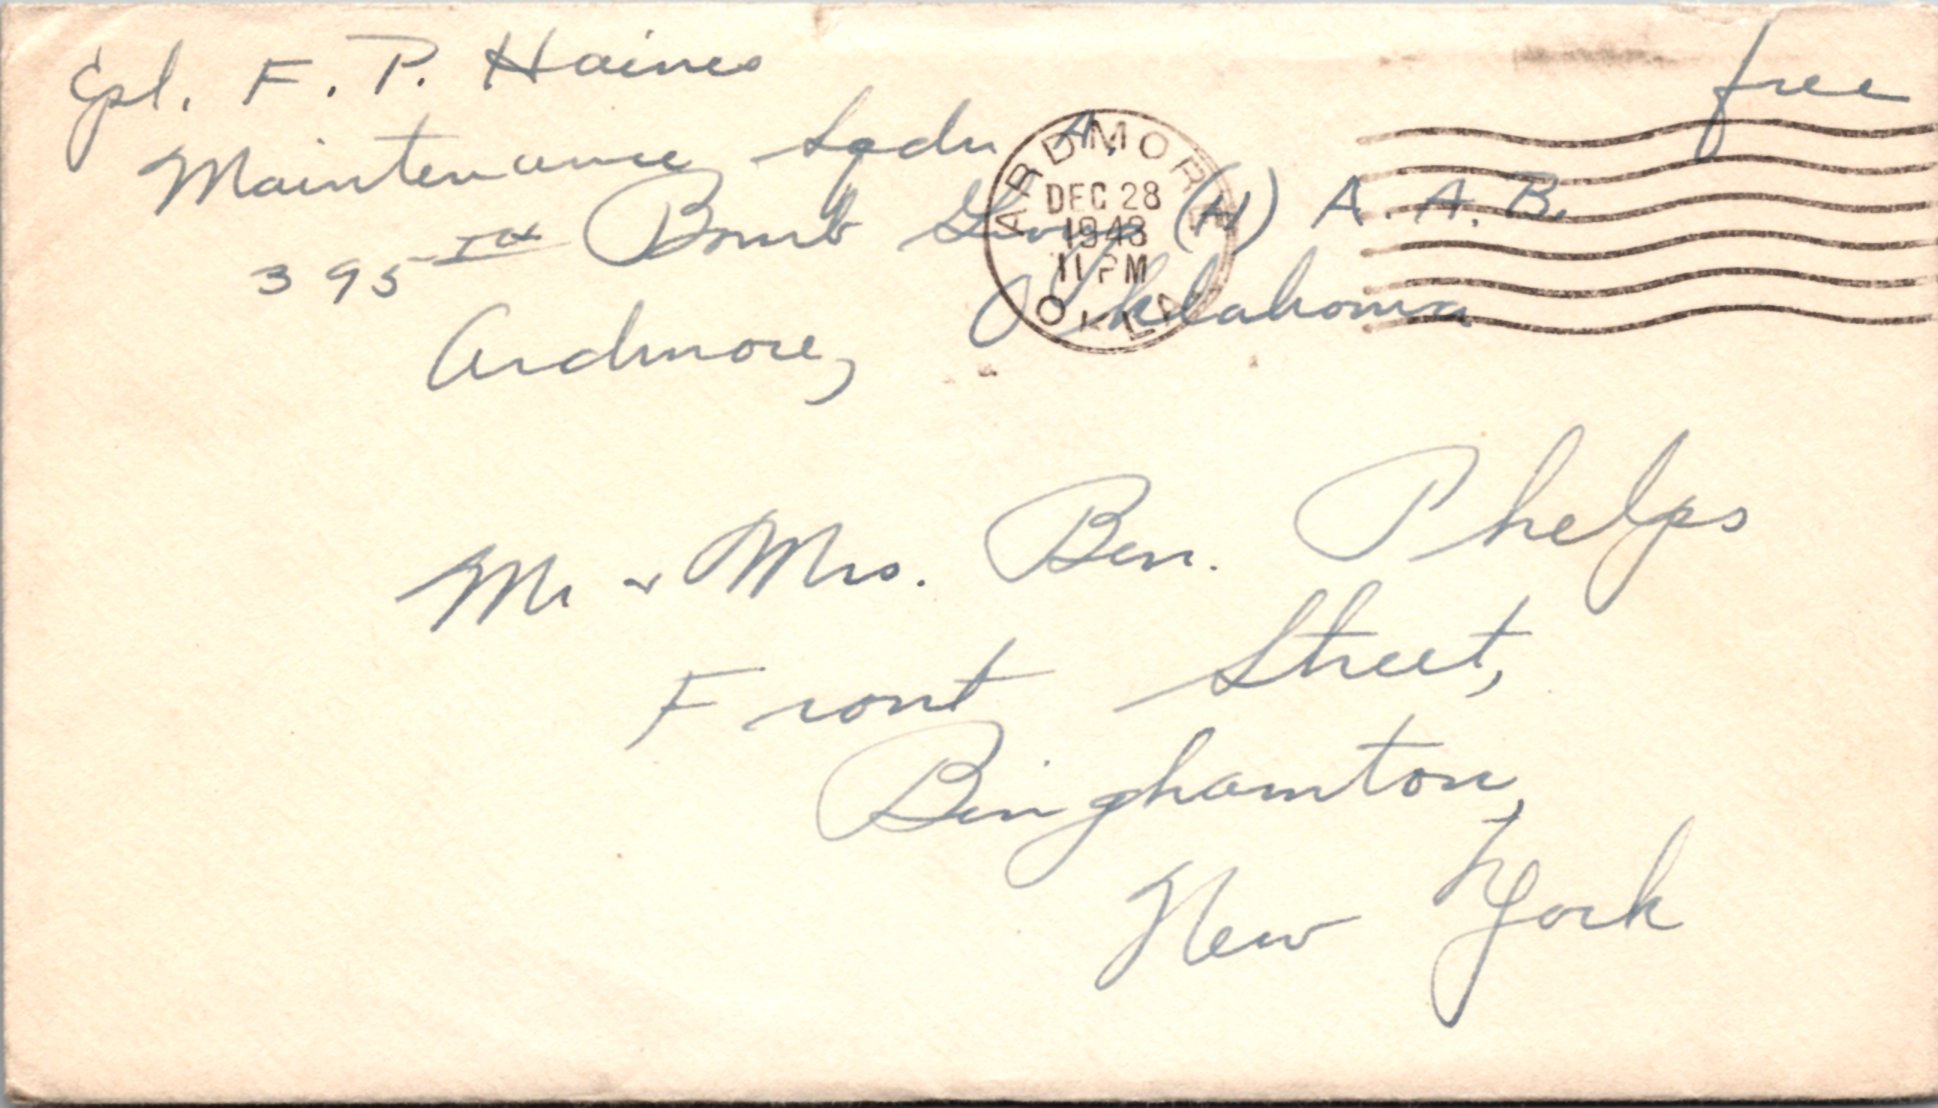 Cpl. F. P. Haines
free
Maintenance Sqdn A,
395th Bomb Group (H) A. A. B.
Ardmore, Oklahoma
ARDMORE
DEC 28
1943
11 PM
OKLA
Mr & Mrs. Ben. Phelps
Front Street,
Binghamton,
New York